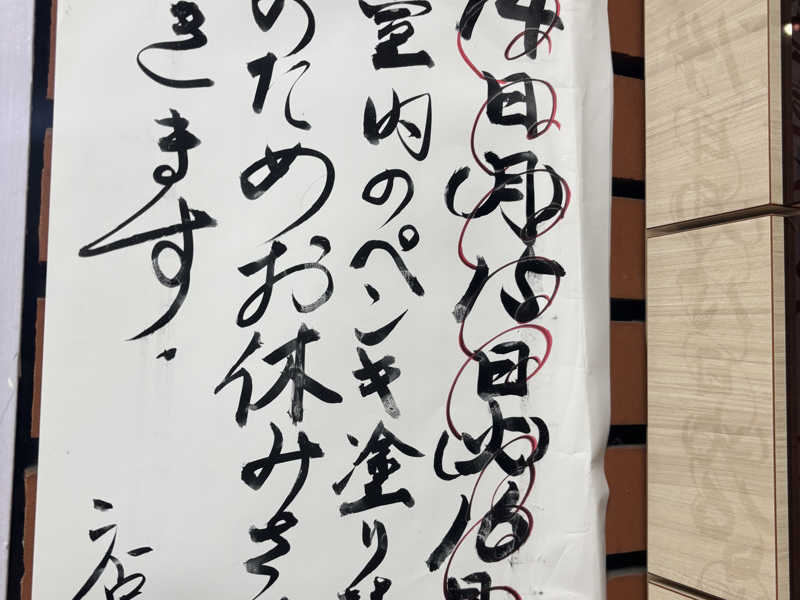 14日(月)15日(火)16日
室内のペンキ塗り
のためお休みさ
きます.
店